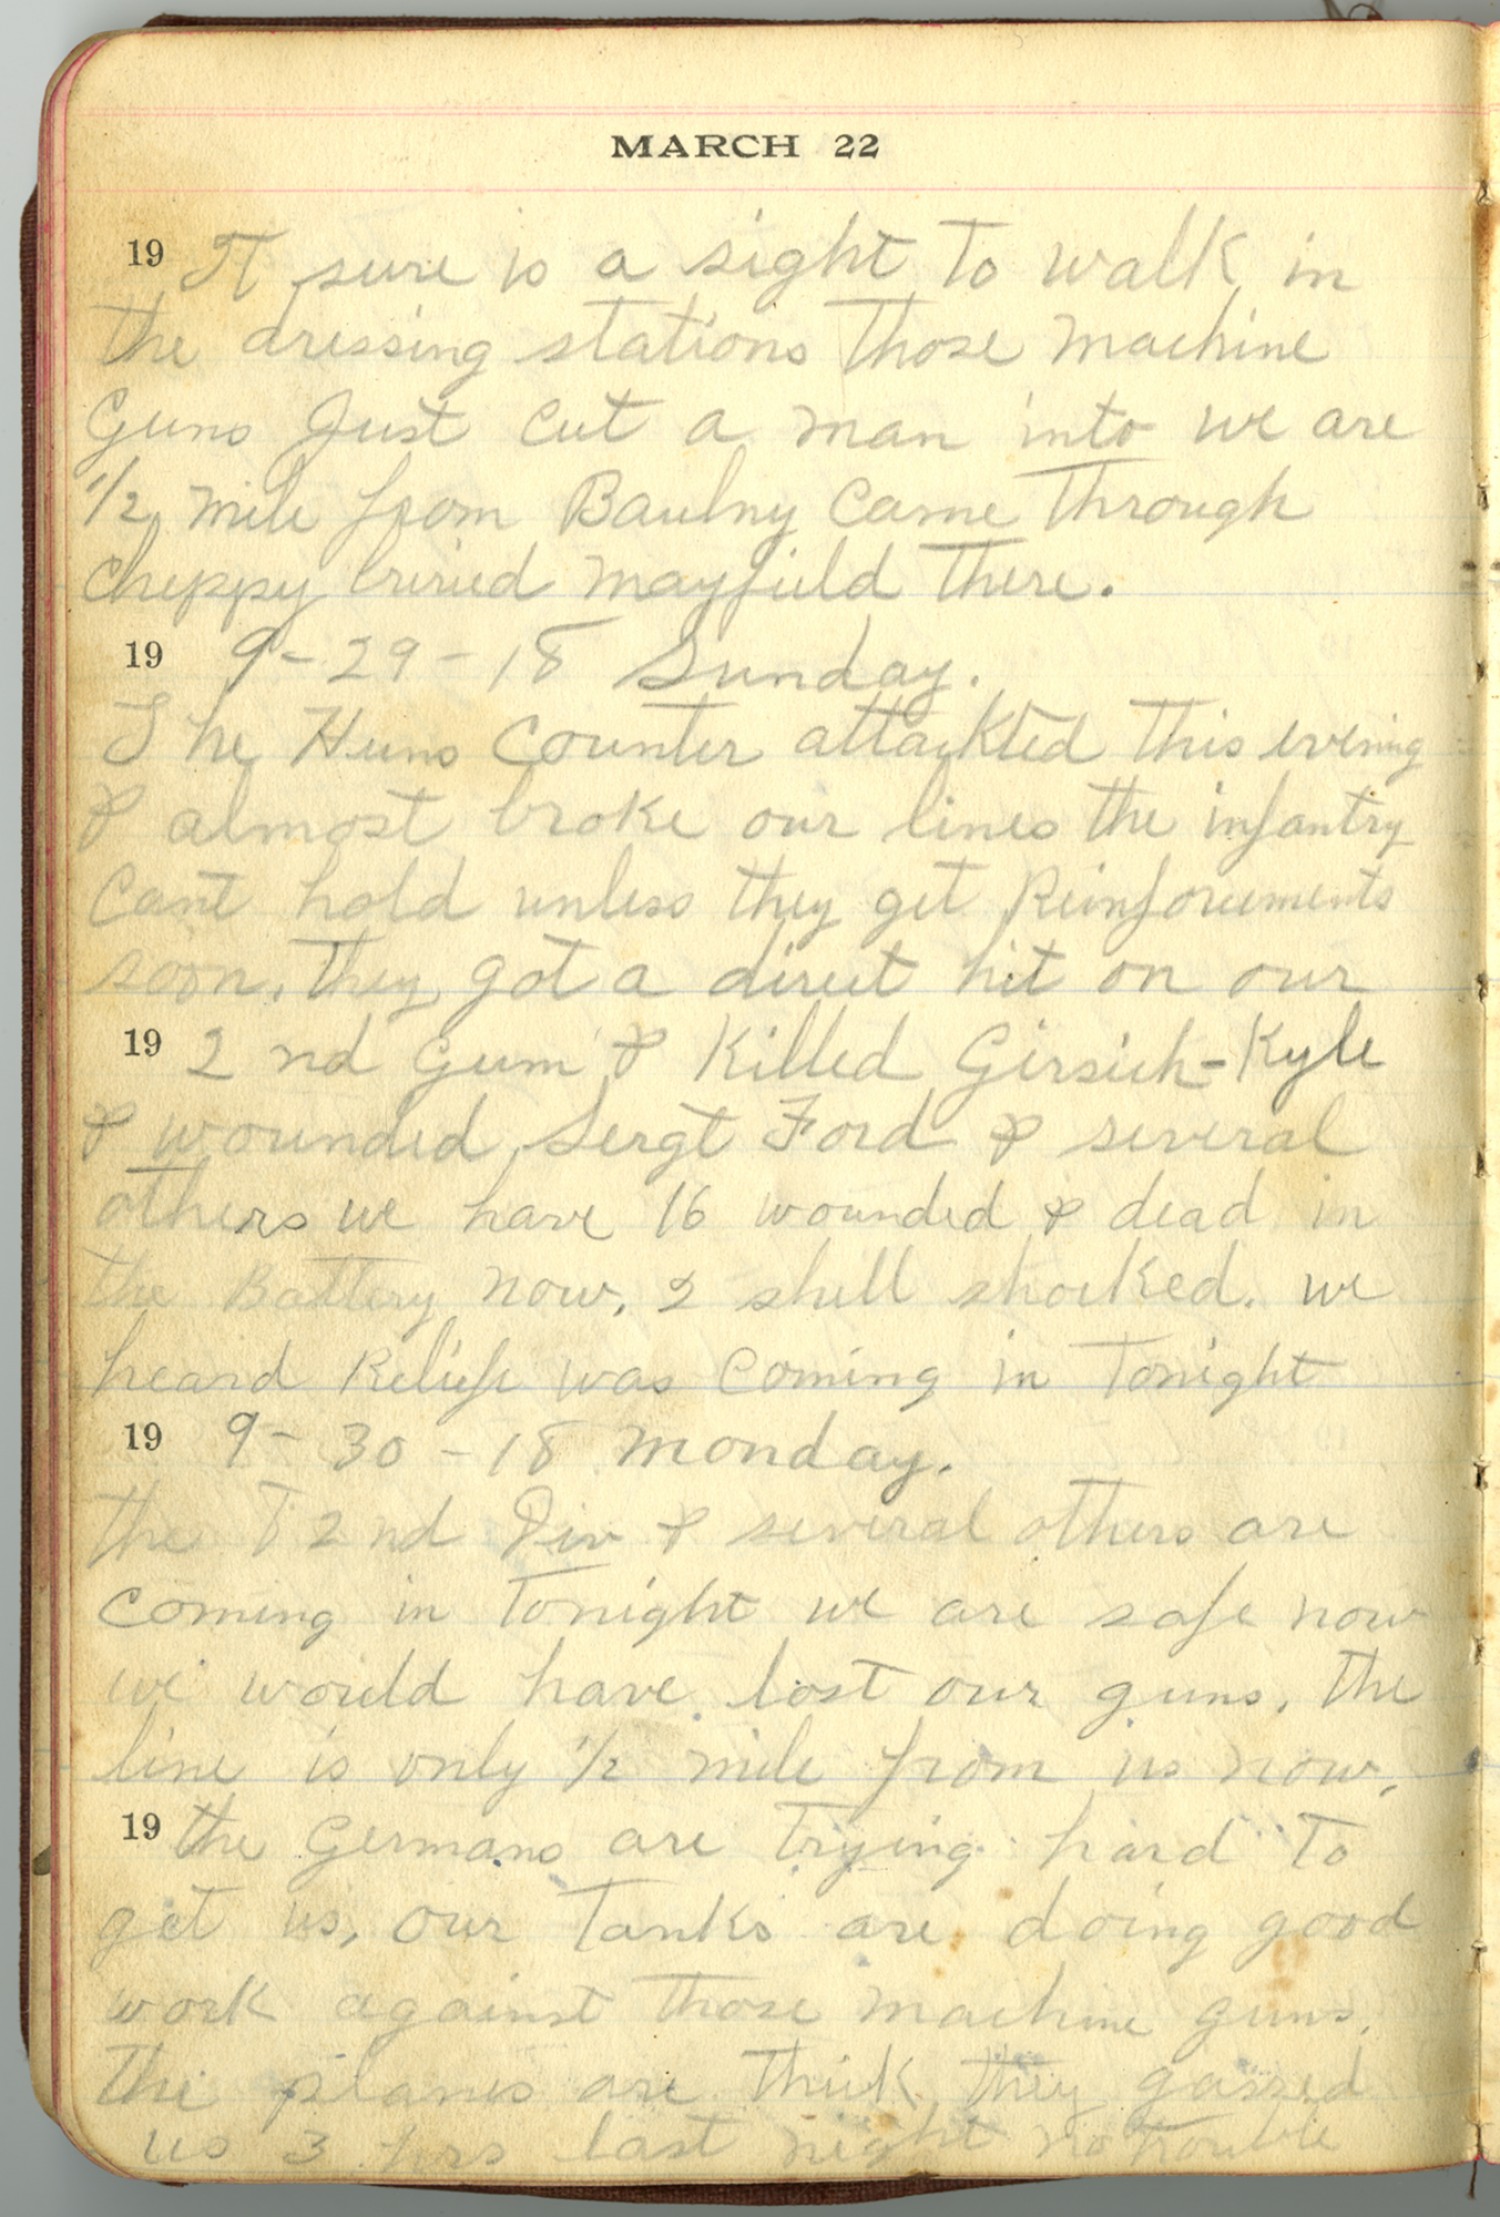 MARCH 22
19 It sure is a sight to walk in
the dressing stations those machine
Guns Just cut a man into we are
1/2 mile from Baulny Came Through
cheppy buried Mayfield there.
19 9-29-18 Sunday.
The Huns Counter attackted this evening
& almost broke our lines the infantry
Cant hold unless they get Reinforcements
soon, they got a direct hit on our
19 2nd Gun & Killed Girsich-Kyle
& wounded Sergt Ford & several
others we have 16 wounded & dead in
the Battery now, 2 shell shocked. we
heard Relief was Coming in Tonight
19 9-30-18 Monday.
the 2nd Div & several others are
coming in Tonight we are safe now
we would have lost our guns, the
line is only 1/2 mile from us now,
19 the Germans are Trying hard To
get us, our Tanks are doing good
work against those machine guns,
the planes are Thick they gassed
us 3 hrs last night no trouble